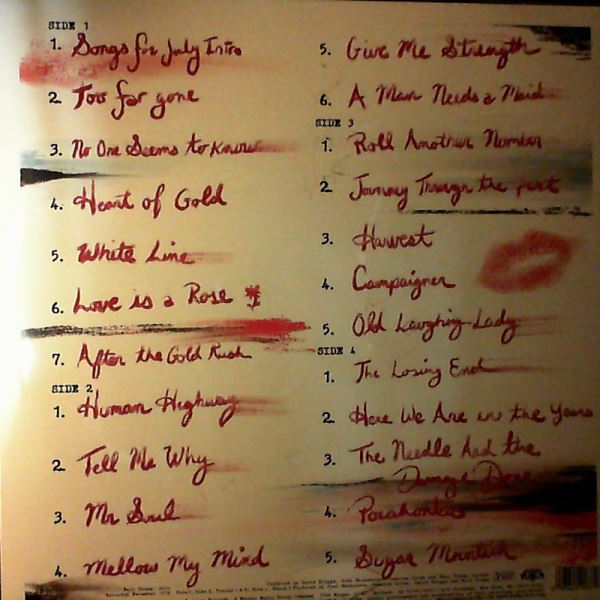 SIDE 1
1. Songs for July Intro
2. Too far gone
3. No One Seems to Know
4. Heart of Gold
5. White Line
6. Love is a Rose
7. After the Gold Rush
SIDE 2
1. Human Highway
2. Tell Me Why
3. Mr Soul
4. Mellow My Mind
5. Give Me Strength
6. A Man Needs a Maid
SIDE 3
1. Roll Another Number
2. Journey Through the past
3. Harvest
4. Campaigner
5. Old Laughing Lady
SIDE 4
1. The Losing End
2. Here We Are in the Years
3. The Needle And the
Damage Done
4. Pocahontas
5. Sugar Mountain